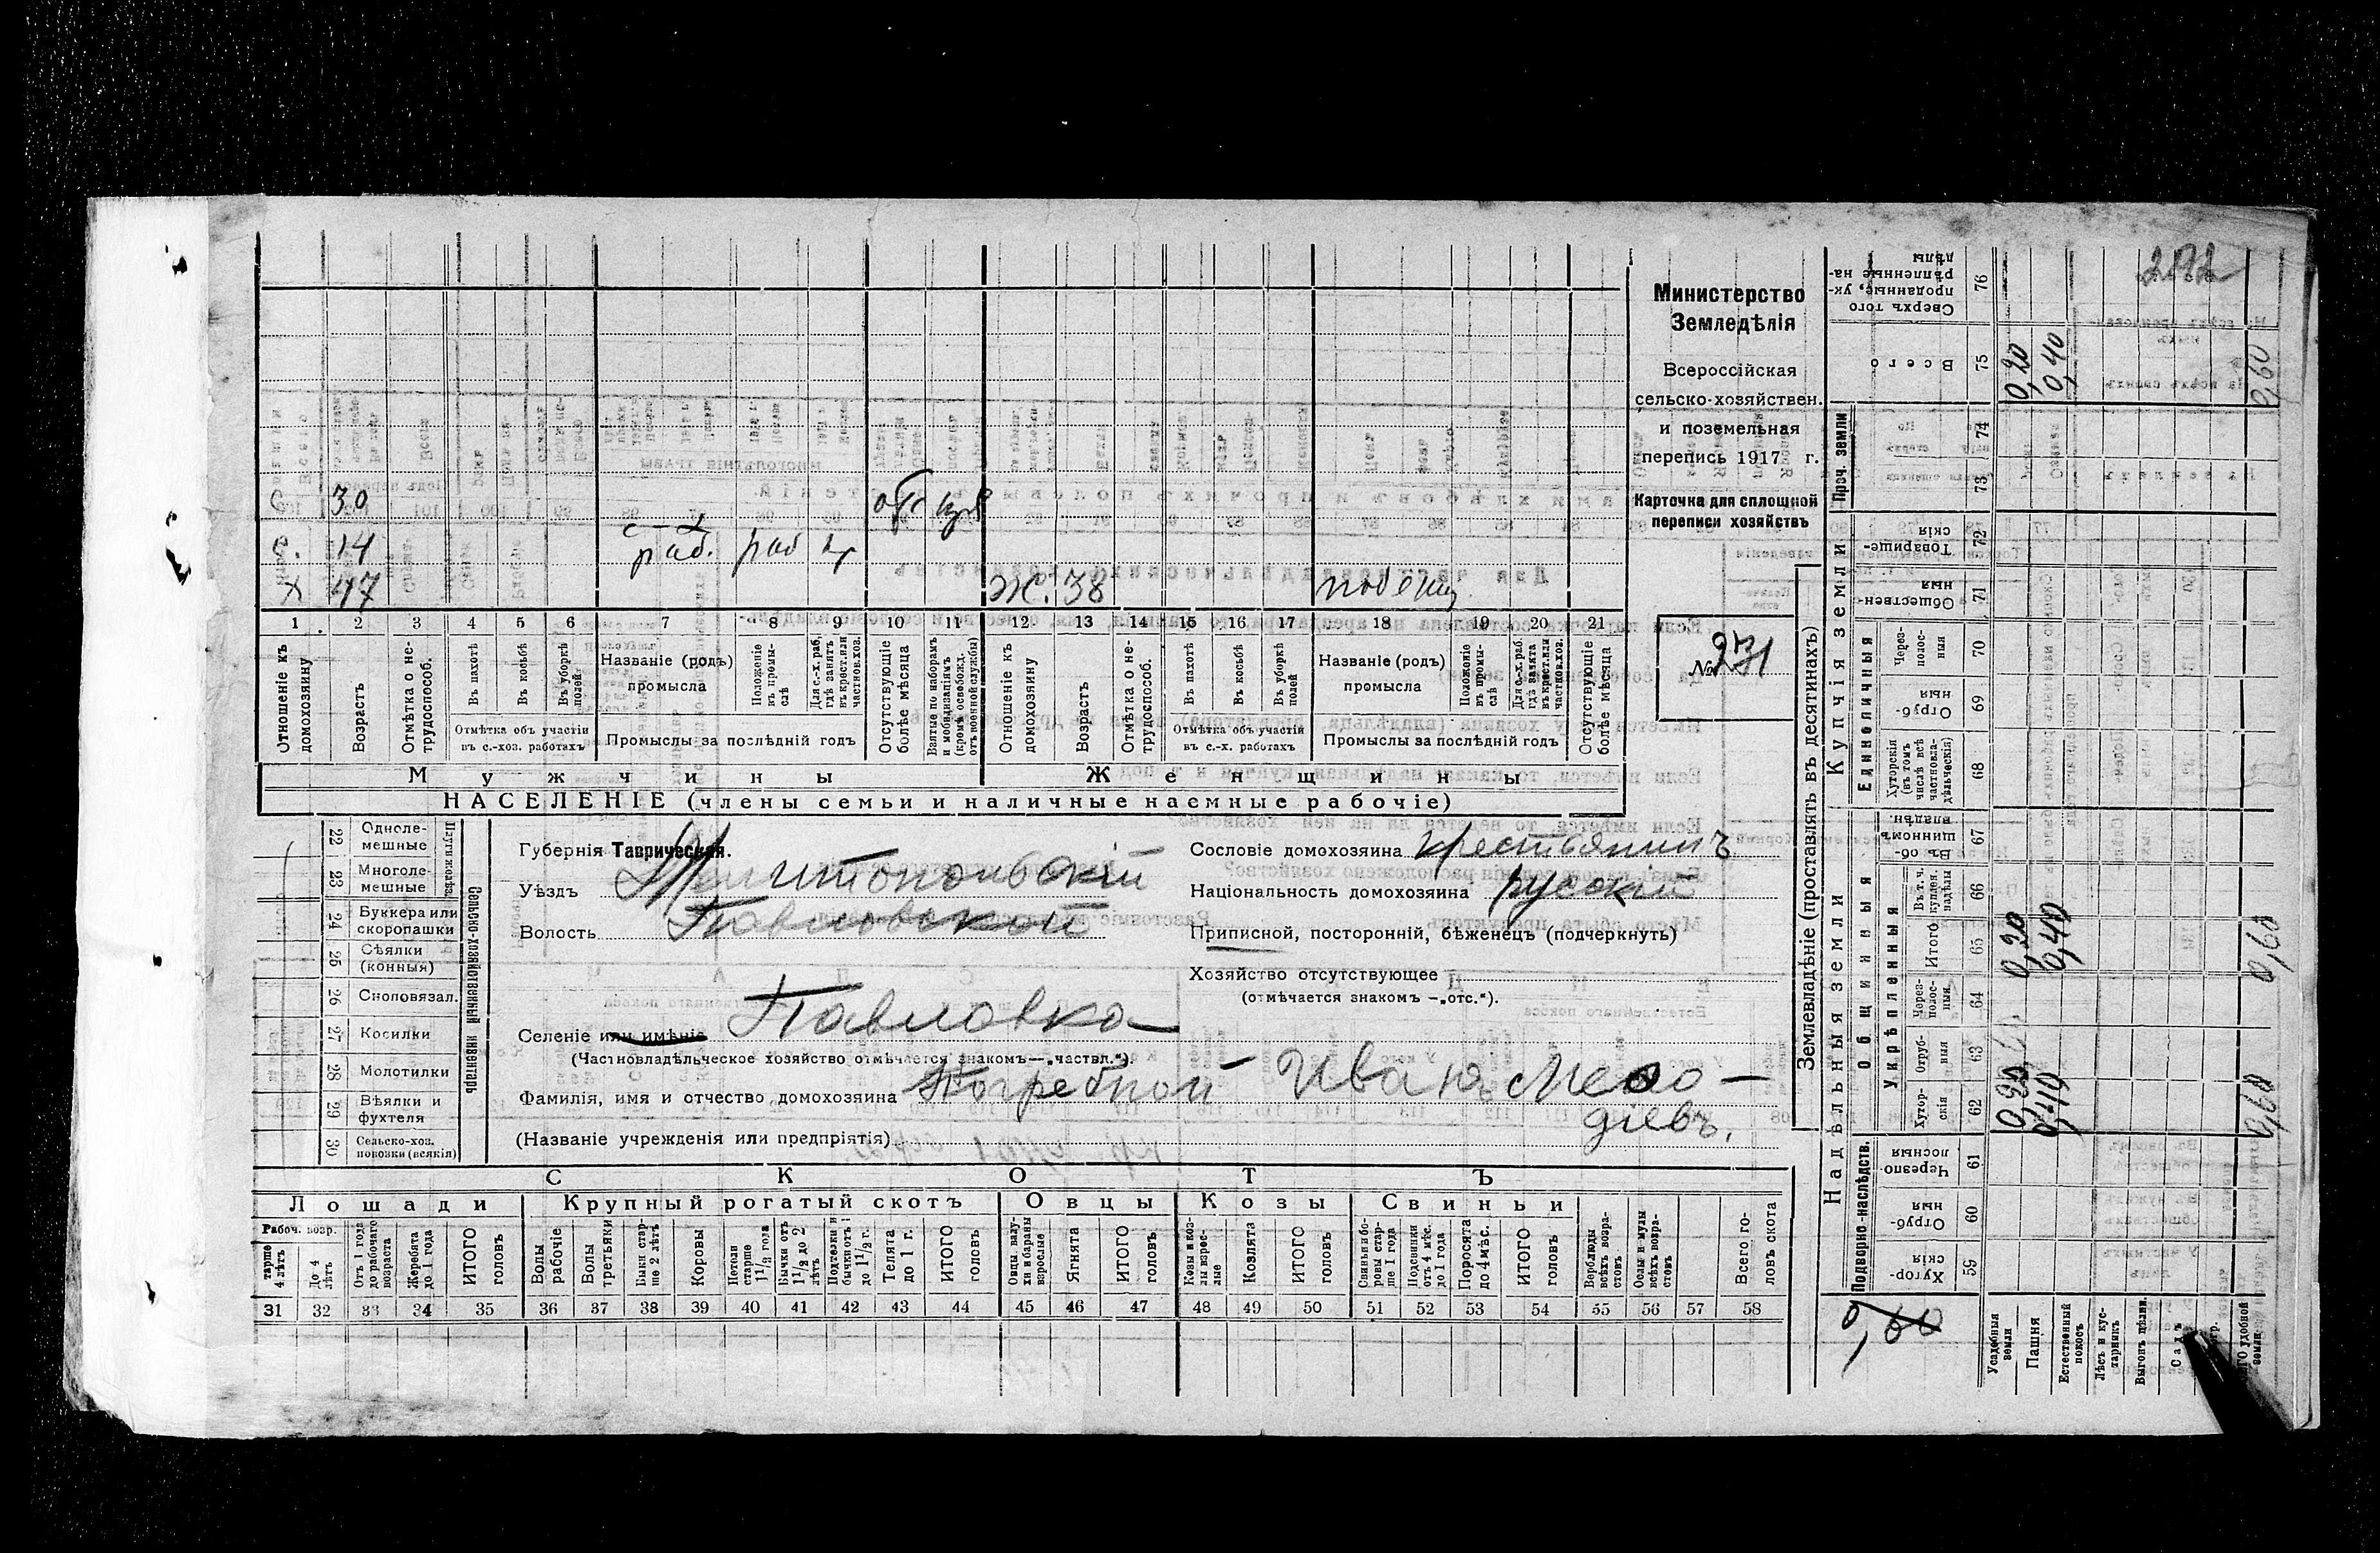 Министерство
Земледѣлія
Всероссійская
сельско-хозяйствен.
и поземельная
перепись 1917 г.
Карточка для сплошной
переписи хозяйствъ
№ 231
С 30
с. 14 с-х раб. раб
х 47 Ж. 38
1 2 3 4 5 6 7 8 9 10 11 12 13 14 15 16 17 18 19 20 21
Отношеніе къ домохозяину
Возрастъ
Отмѣтка о не-трудоспособ.
Въ пахотѣ
Въ косьбѣ
Въ уборкѣ полей
Отмѣтка объ участіи
въ с.-хоз. работахъ
Названіе (родъ)
промысла
Положеніе въ промы-слѣ
Для с.-х. раб, гдѣ занятъ въ крест. или частнов. хоз.
Промыслы за послѣдній годъ
Отсутствующіе болѣе мѣсяца
Взятые по наборамъ и мобилизаціямъ (кромѣ освобожд. отъ военной службы)
Отношеніе къ домохозяину
Возрастъ
Отмѣтка о не-трудоспособ.
Въ пахотѣ
Въ косьбѣ
Въ уборкѣ полей
Отмѣтка объ участіи
въ с.-х. работахъ
Названіе (родъ)
промысла
Положеніе въ промы-слѣ
Для с.-х. раб. гдѣ занята въ крест. или частнов. хоз.
Промыслы за послѣдній годъ
Отсутствующіе болѣе мѣсяца
Мужчины Женщины
НАСЕЛЕНІЕ (члены семьи и наличные наемные рабочіе)
22 Одноле-мешные
23 Многоле-мешные
24 Буккера или скоропашки
25 Сѣялки (конныя)
26 Сноповязал.
27 Косилки
28 Молотилки
29 Вѣялки и фухтеля
30 Сельско-хоз. повозки (всякія)
Сельско-хозяйственный инвентарь
Губернія Таврическая.
Уѣздъ Мелитопольскій
Волость Павловской
Селеніе или имѣніе Павловка
(Частновладѣльческое хозяйство отмѣчается знакомъ—„частвл.“).
Фамилія, имя и отчество домохозяина Погребной Иванъ Мефо-
діевъ.
(Названіе учрежденія или предпріятія)
Сословіе домохозяина крестьянинъ
Національность домохозяина русскій
Приписной, посторонній, бѣженецъ (подчеркнуть)
Хозяйство отсутствующее
(отмѣчается знакомъ —„отс.“).
СКОТЪ
Лошади Крупный рогатый скотъ Овцы Козы Свиньи
Рабоч. возр.
тарше 4 лѣтъ
До 4 лѣтъ
Отъ 1 года до рабочаго возраста
Жеребята до 1 года
ИТОГО головъ
Волы рабочіе
Волы третьяки
Быки стар-ше 2 лѣтъ
Коровы
Нетели старше 1½ года
Бычки отъ 1½ до 2 лѣтъ
Подтелки и бычки отъ 1 до 1½ г.
Телята до 1 г.
ИТОГО головъ
Овцы, валу-хи и бараны взрослые
Ягнята
ИТОГО головъ
Козы и коз-лы взрос-лые
Козлята
ИТОГО головъ
Свиньи и бо-ровы стар-ше 1 года
Подсвинки отъ 4 мѣс. до 1 года
Поросята до 4 мѣс.
ИТОГО головъ
Верблюды всѣхъ возра-стовъ
Ослы и мулы всѣхъ возра-стовъ
Всего го-ловъ скота
31 32 33 34 35 36 37 38 39 40 41 42 43 44 45 46 47 48 49 50 51 52 53 54 55 56 57 58
Землевладѣніе (проставлять въ десятинахъ)
Надѣльныя земли
Купчія земли
Проч. земли
Подворно-наслѣдств.
Общинныя
Укрѣпленныя
Единоличныя
Хутор-скія 59
Отруб-ныя 60
Черезпо-лосныя 61
Хутор-скія 62
Отруб-ныя 63
Через-полос-ныя 64
Итого 65
Въ т. ч. куплен. надѣлы 66
Въ об-щинномъ владѣн. 67
Хуторскія (въ томъ числѣ всѣ частновла-дѣльческія) 68
Отруб-ныя 69
Через-полос-ныя 70
Обществен-ныя 71
Товарище-скія 72
73
74
Всего 75
Сверхъ того проданные, ук-рѣпленные на-дѣлы 76
Усадебныя земли 0,20 0,20 0,20
Пашня 0,40 0,40 0,40
Естественный покосъ
Лѣсъ и кус-тарникъ
Выгонъ цѣлин.
Садъ
0,60 0,60 0,60
0,60